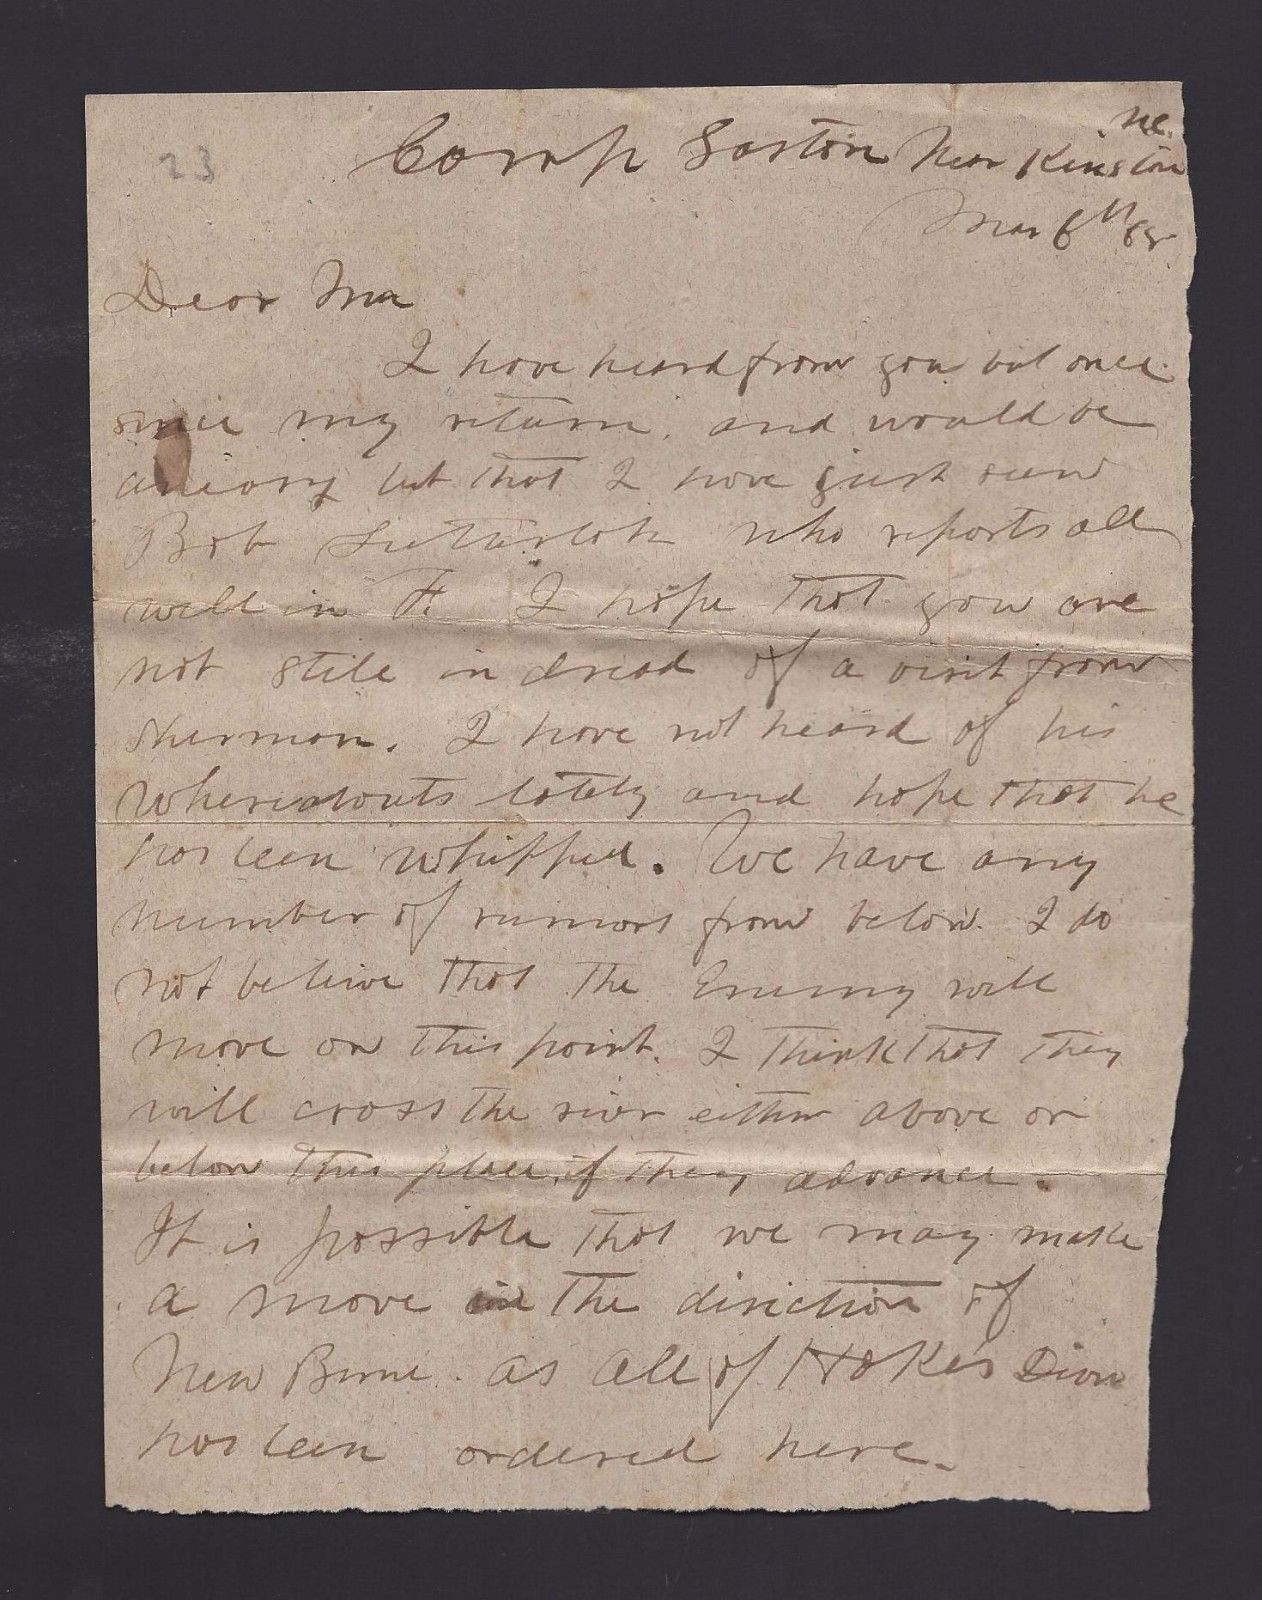 23
Camp Gaston Near Kinston
N.C.
Mar 6th 65
Dear Ma
I have heard from you but once
since my return. and would be
but that I have just seen
Bob who reports all
well in F. I hope that you are
not still in dread of a visit from
Sherman. I have not heard of his
whereabouts lately and hope that he
has been whipped. We have any
number of rumors from below. I do
not believe that the Enemy will
move on this point. I think that they
will cross the river either above or
below this place, if they advance.
It is possible that we may make
a move in the direction of
New Berne. as all of Hoke's Divn
has been ordered here.